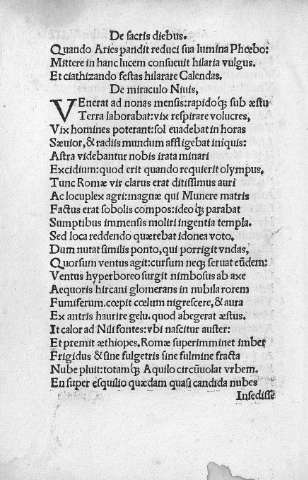 De sacris diebus.
Quando Aries pandit reduci sua lumina Phœbo:
Mittere in hanc lucem consueuit hilaria vulgus.
Et ciathizando festas hilarare Calendas.
De miraculo Niuis,
VEnerat ad nonas mensis: rapidoq; sub æstu
Terra laborabat: vix respirare volucres,
Vix homines poterant: sol euadebat in horas
Sæuior, & radiis mundum affligebat iniquis:
Astra videbantur nobis irata minari
Excidium: quod erit quando requierit olympus,
Tunc Romæ vir clarus erat ditissimus auri
Ac locuplex agri: magnæ qui Munere matris
Factus erat sobolis compos: ideoq; parabat
Sumptibus immensis moliri ingentia templa.
Sed loca reddendo quærebat idonea voto.
Dum nutat similis ponto, qui porrigit vndas,
Quorsum ventus agit: cursum neq; seruat eūdem:
Ventus hyperboreo surgit nimbosus ab axe
Aequoris hircani glomerans in nubila rorem
Fumiferum. cœpit cœlum nigrescere, & aura
Ex antris haurire gelu. quod abegerat æstus.
It calor ad Nili fontes: vbi nascitur auster:
Et premit æthiopes. Romæ superimminet imber
Frigidus & sine fulgetris sine fulmine fracta
Nube pluit: totamq; Aquilo circūuolat vrbem.
En super esquilio quædam quasi candida nubes
Insedisse